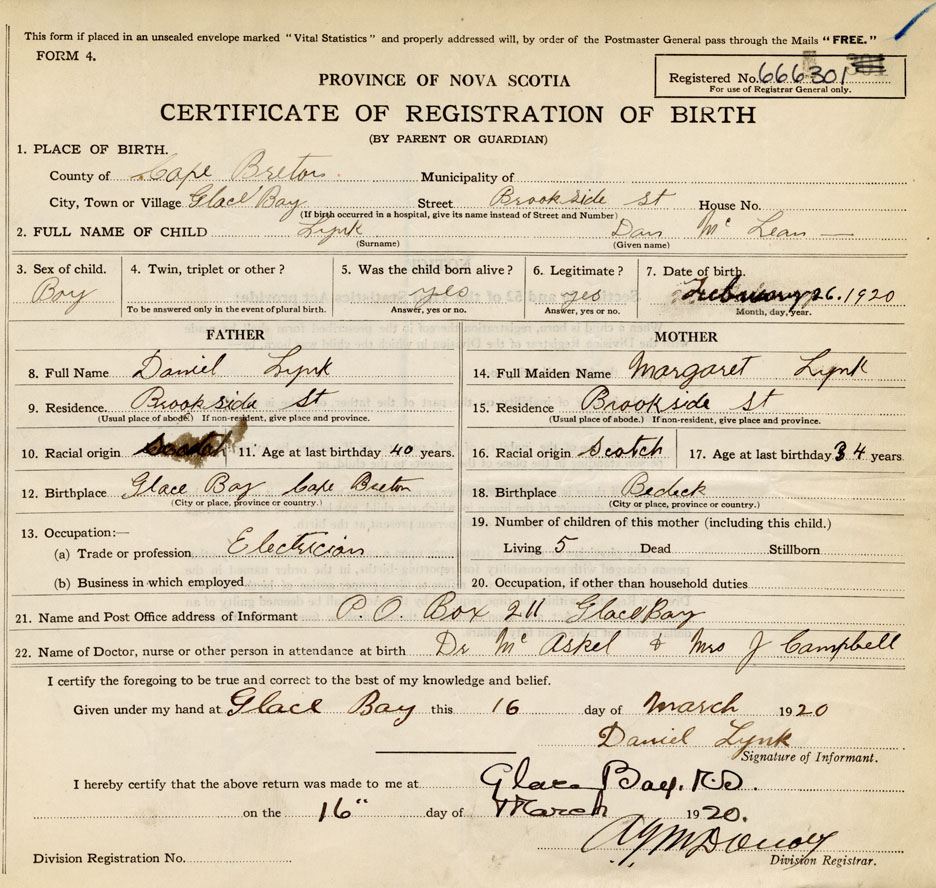 This form if placed in an unsealed envelope marked "Vital Statistics" and properly addressed will, by order of the Postmaster General pass through the Mails "FREE."
FORM 4.
PROVINCE OF NOVA SCOTIA
Registered No. 666301 301
For use of Registrar General only.
CERTIFICATE OF REGISTRATION OF BIRTH
(BY PARENT OR GUARDIAN)
1. PLACE OF BIRTH.
County of Cape Breton Municipality of
City, Town or Village Glace Bay Street Brookside St House No.
(If birth occurred in a hospital, give its name instead of Street and Number)
2. FULL NAME OF CHILD Lynk Dan Mc Lean
(Surname) (Given name)
3. Sex of child. 4. Twin, triplet or other? 5. Was the child born alive? 6. Legitimate? 7. Date of birth.
Boy yes yes February 26. 1920
To be answered only in the event of plural birth. Answer, yes or no. Answer, yes or no. Month, day, year.
FATHER MOTHER
8. Full Name Daniel Lynk 14. Full Maiden Name Margaret Lynk
9. Residence. Brookside St 15. Residence Brookside St
(Usual place of abode.) If non-resident, give place and province. (Usual place of abode.) If non-resident, give place and province.
10. Racial origin Scotch 11. Age at last birthday 40 years. 16. Racial origin Scotch 17. Age at last birthday 34 years
12. Birthplace Glace Bay Cape Breton 18. Birthplace Bedeck
(City or place, province or country.) (City or place, province or country.)
13. Occupation:— 19. Number of children of this mother (including this child.)
(a) Trade or profession Electrician Living 5 Dead Stillborn
(b) Business in which employed 20. Occupation, if other than household duties
21. Name and Post Office address of Informant P.O. Box 211 Glace Bay
22. Name of Doctor, nurse or other person in attendance at birth Dr Mc Askel & Mrs J Campbell
I certify the foregoing to be true and correct to the best of my knowledge and belief.
Given under my hand at Glace Bay this 16 day of March 1920
Daniel Lynk
Signature of Informant.
I hereby certify that the above return was made to me at Glace Bay. R.D.
on the 16" day of March 1920.
Division Registration No. Division Registrar.